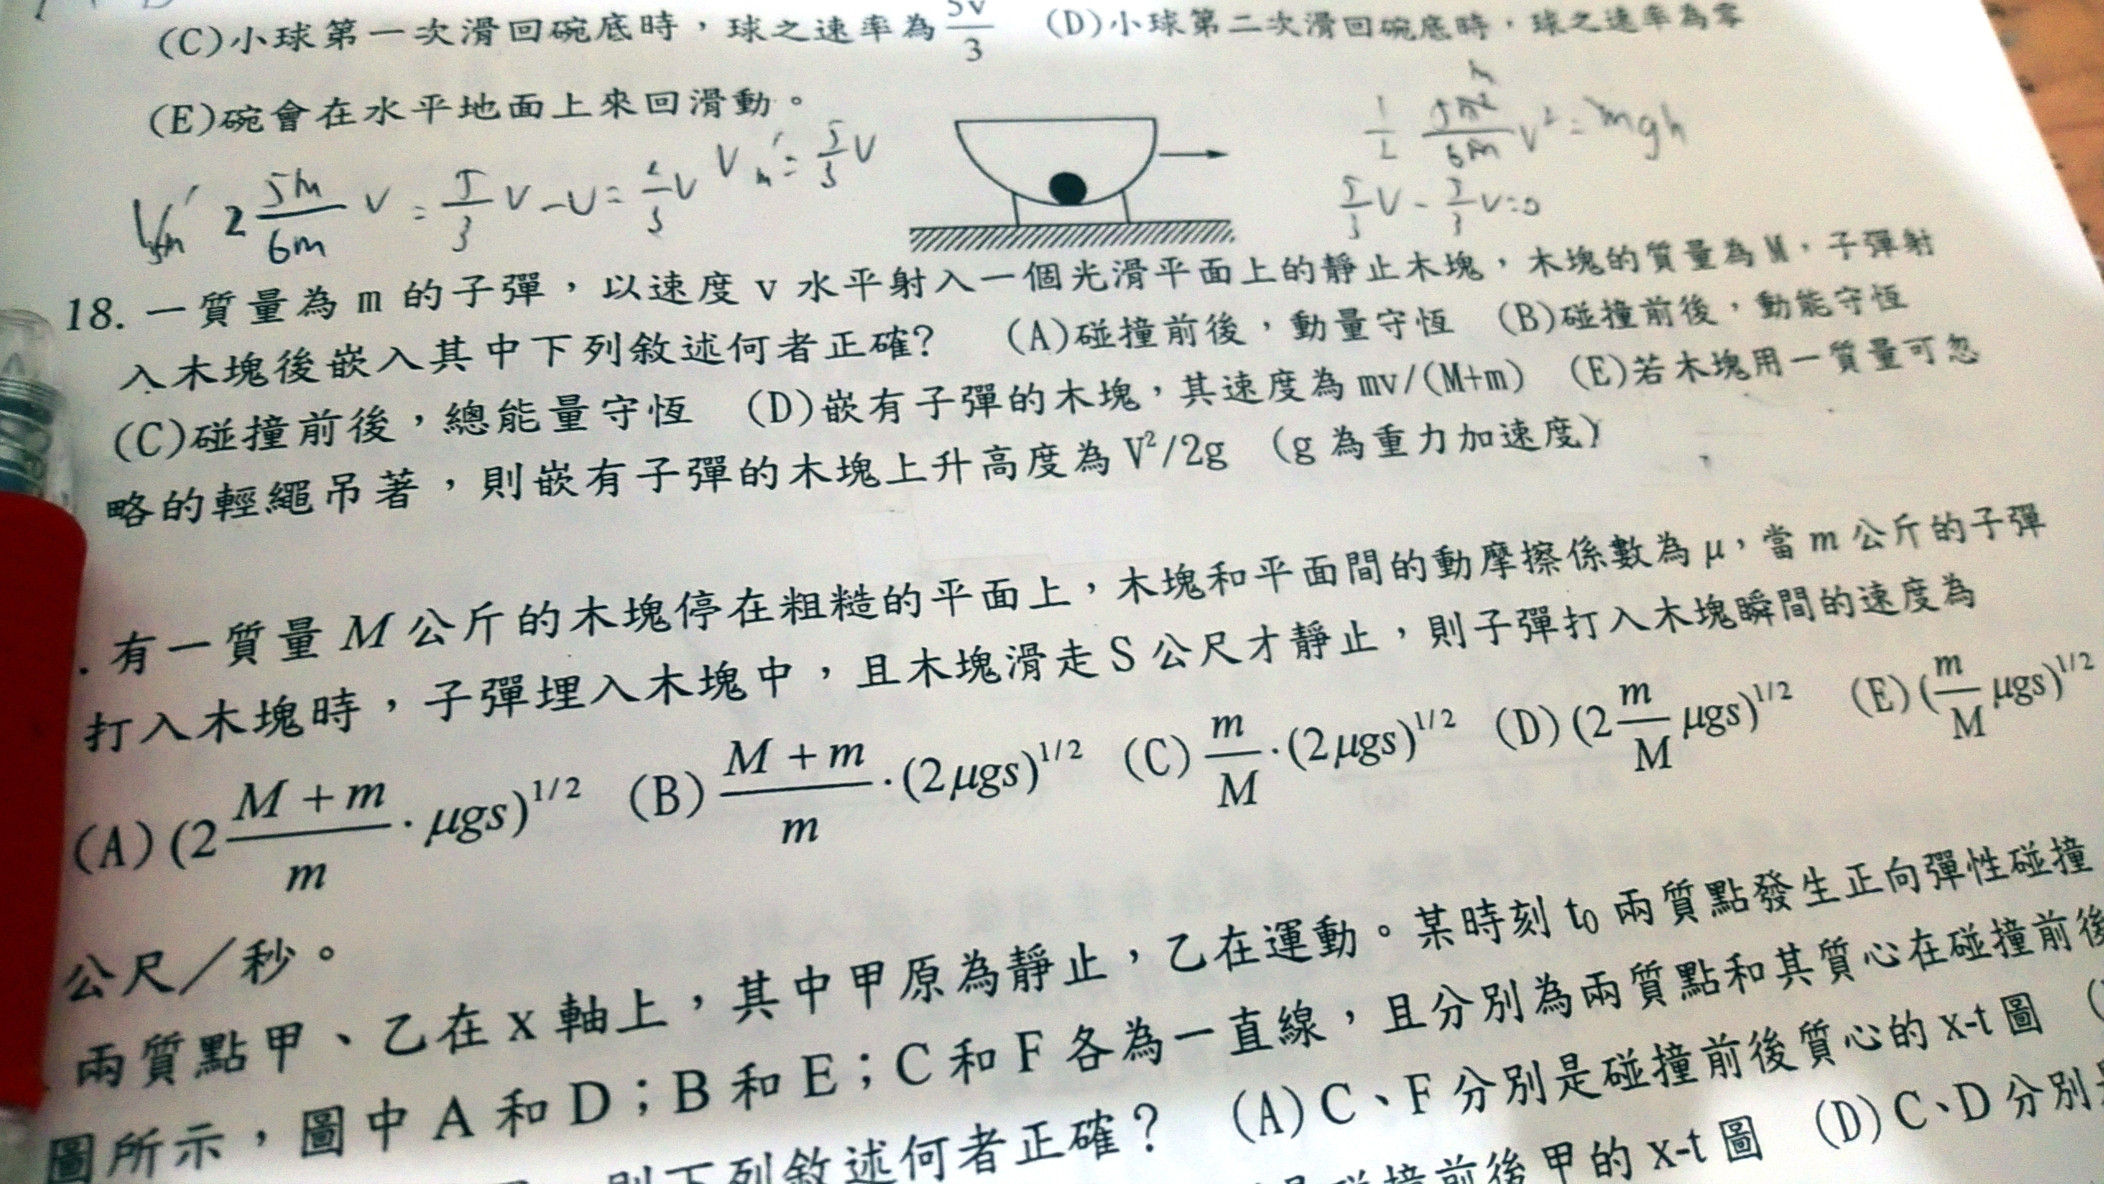 (C)小球第一次滑回碗底時，球之速率為 5v/3 (D)小球第二次滑回碗底時，球之速率為零
(E)碗會在水平地面上來回滑動。
2 5m/6m v = 5/3 v - v = 2/3 v
= 5/3 v
v² = mgh
5/3 v - 5/3 v = 0
18. 一質量為 m 的子彈，以速度 v 水平射入一個光滑平面上的靜止木塊，木塊的質量為 M，子彈射
入木塊後嵌入其中下列敘述何者正確? (A)碰撞前後，動量守恆 (B)碰撞前後，動能守恆
(C)碰撞前後，總能量守恆 (D)嵌有子彈的木塊，其速度為 mv/(M+m) (E)若木塊用一質量可忽
略的輕繩吊著，則嵌有子彈的木塊上升高度為 V²/2g (g 為重力加速度)
. 有一質量 M 公斤的木塊停在粗糙的平面上，木塊和平面間的動摩擦係數為 μ，當 m 公斤的子彈
打入木塊時，子彈埋入木塊中，且木塊滑走 S 公尺才靜止，則子彈打入木塊瞬間的速度為
(A) (2 (M+m)/m · μgs)^1/2 (B) (M+m)/m · (2μgs)^1/2 (C) m/M · (2μgs)^1/2 (D) (2 m/M μgs)^1/2 (E) (m/M μgs)^1/2
公尺／秒。
兩質點甲、乙在 x 軸上，其中甲原為靜止，乙在運動。某時刻 t₀ 兩質點發生正向彈性碰撞
圖所示，圖中 A 和 D；B 和 E；C 和 F 各為一直線，且分別為兩質點和其質心在碰撞前後
則下列敘述何者正確？ (A) C、F 分別是碰撞前後質心的 x-t 圖 (
碰撞前後甲的 x-t 圖 (D) C、D 分別